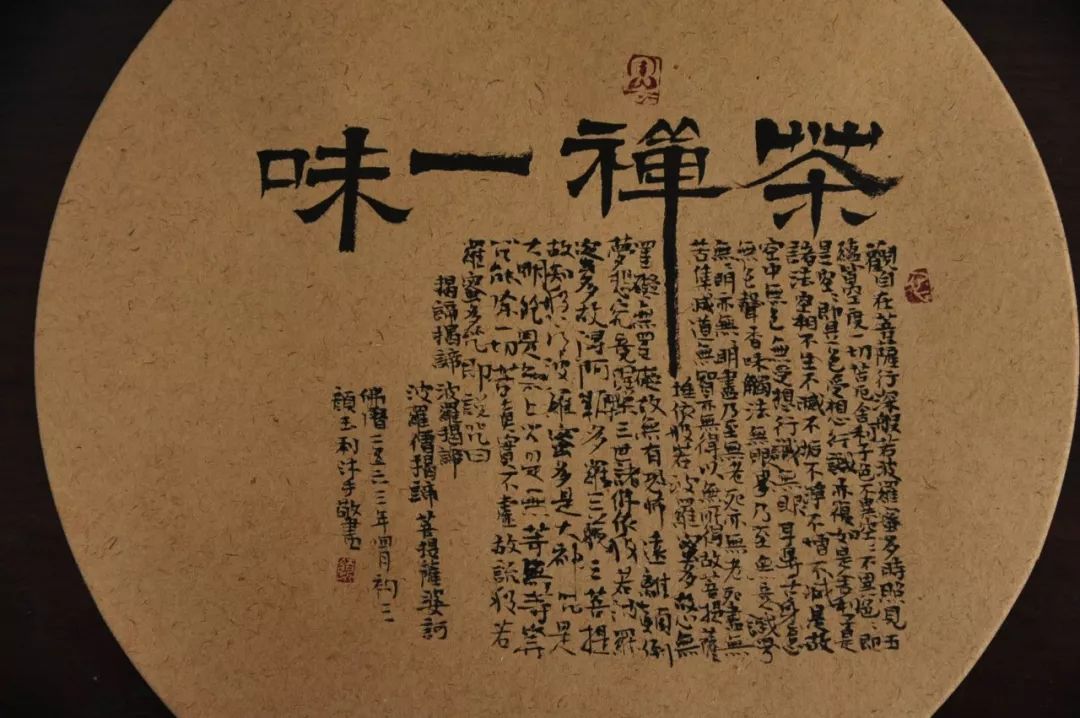 茶禪一味
觀自在菩薩行深般若波羅蜜多時照見五
蘊皆空度一切苦厄舍利子色不異空〻不異色〻即
是空〻即是色受想行識亦復如是舍利子是
諸法空相不生不滅不垢不淨不增不減是故
空中無色無受想行識無眼耳鼻舌身意
無色聲香味觸法無眼界乃至無意識界
無明亦無明盡乃至無老死亦無老死盡無
苦集滅道無智亦無得以無所得故菩提薩
埵依般若波羅蜜多故心無
罣礙無罣礙故無有恐怖遠離顛倒
夢想究竟涅槃三世諸佛依般若波羅
蜜多故得阿耨多羅三藐三菩提
故知般若波羅蜜多是大神咒是
大明咒是無上咒是無等等
咒能除一切苦真實不虛故說般若
羅蜜多咒即說咒曰
揭諦揭諦 波羅揭諦
波羅僧揭諦 菩提薩婆訶
佛曆二五三三年 月初三
顏玉利沐手敬書